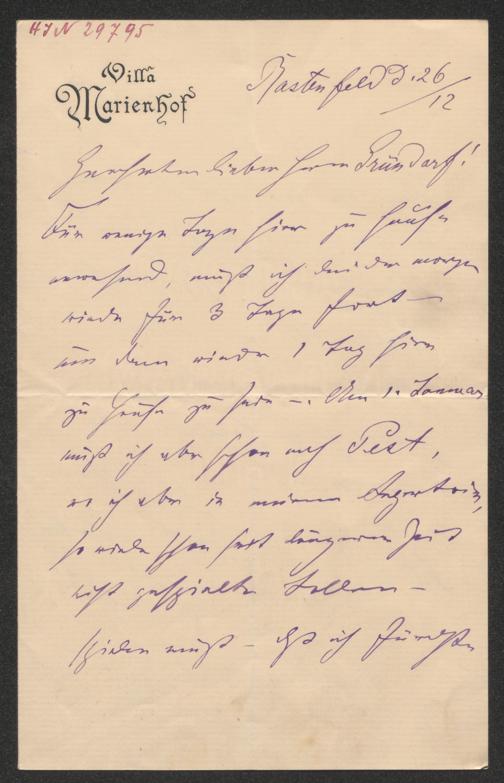 HIN 29795
Villa
Marienhof
Rastenfeld d. 26/12
Geehrter lieber Herr Gründorf!
Für wenige Tage hier zu Hause
anwesend, muß ich
wieder für 3 Tage fort –
um dann wieder 1 Tag hier
zu Hause zu sein –. Am 1. Januar
muß ich aber schon nach Pest,
wo ich aber in meinem Repertoire,
so viele schon seit längerer Zeit
nicht gespielte Rollen –
spielen muß – daß ich fürchte